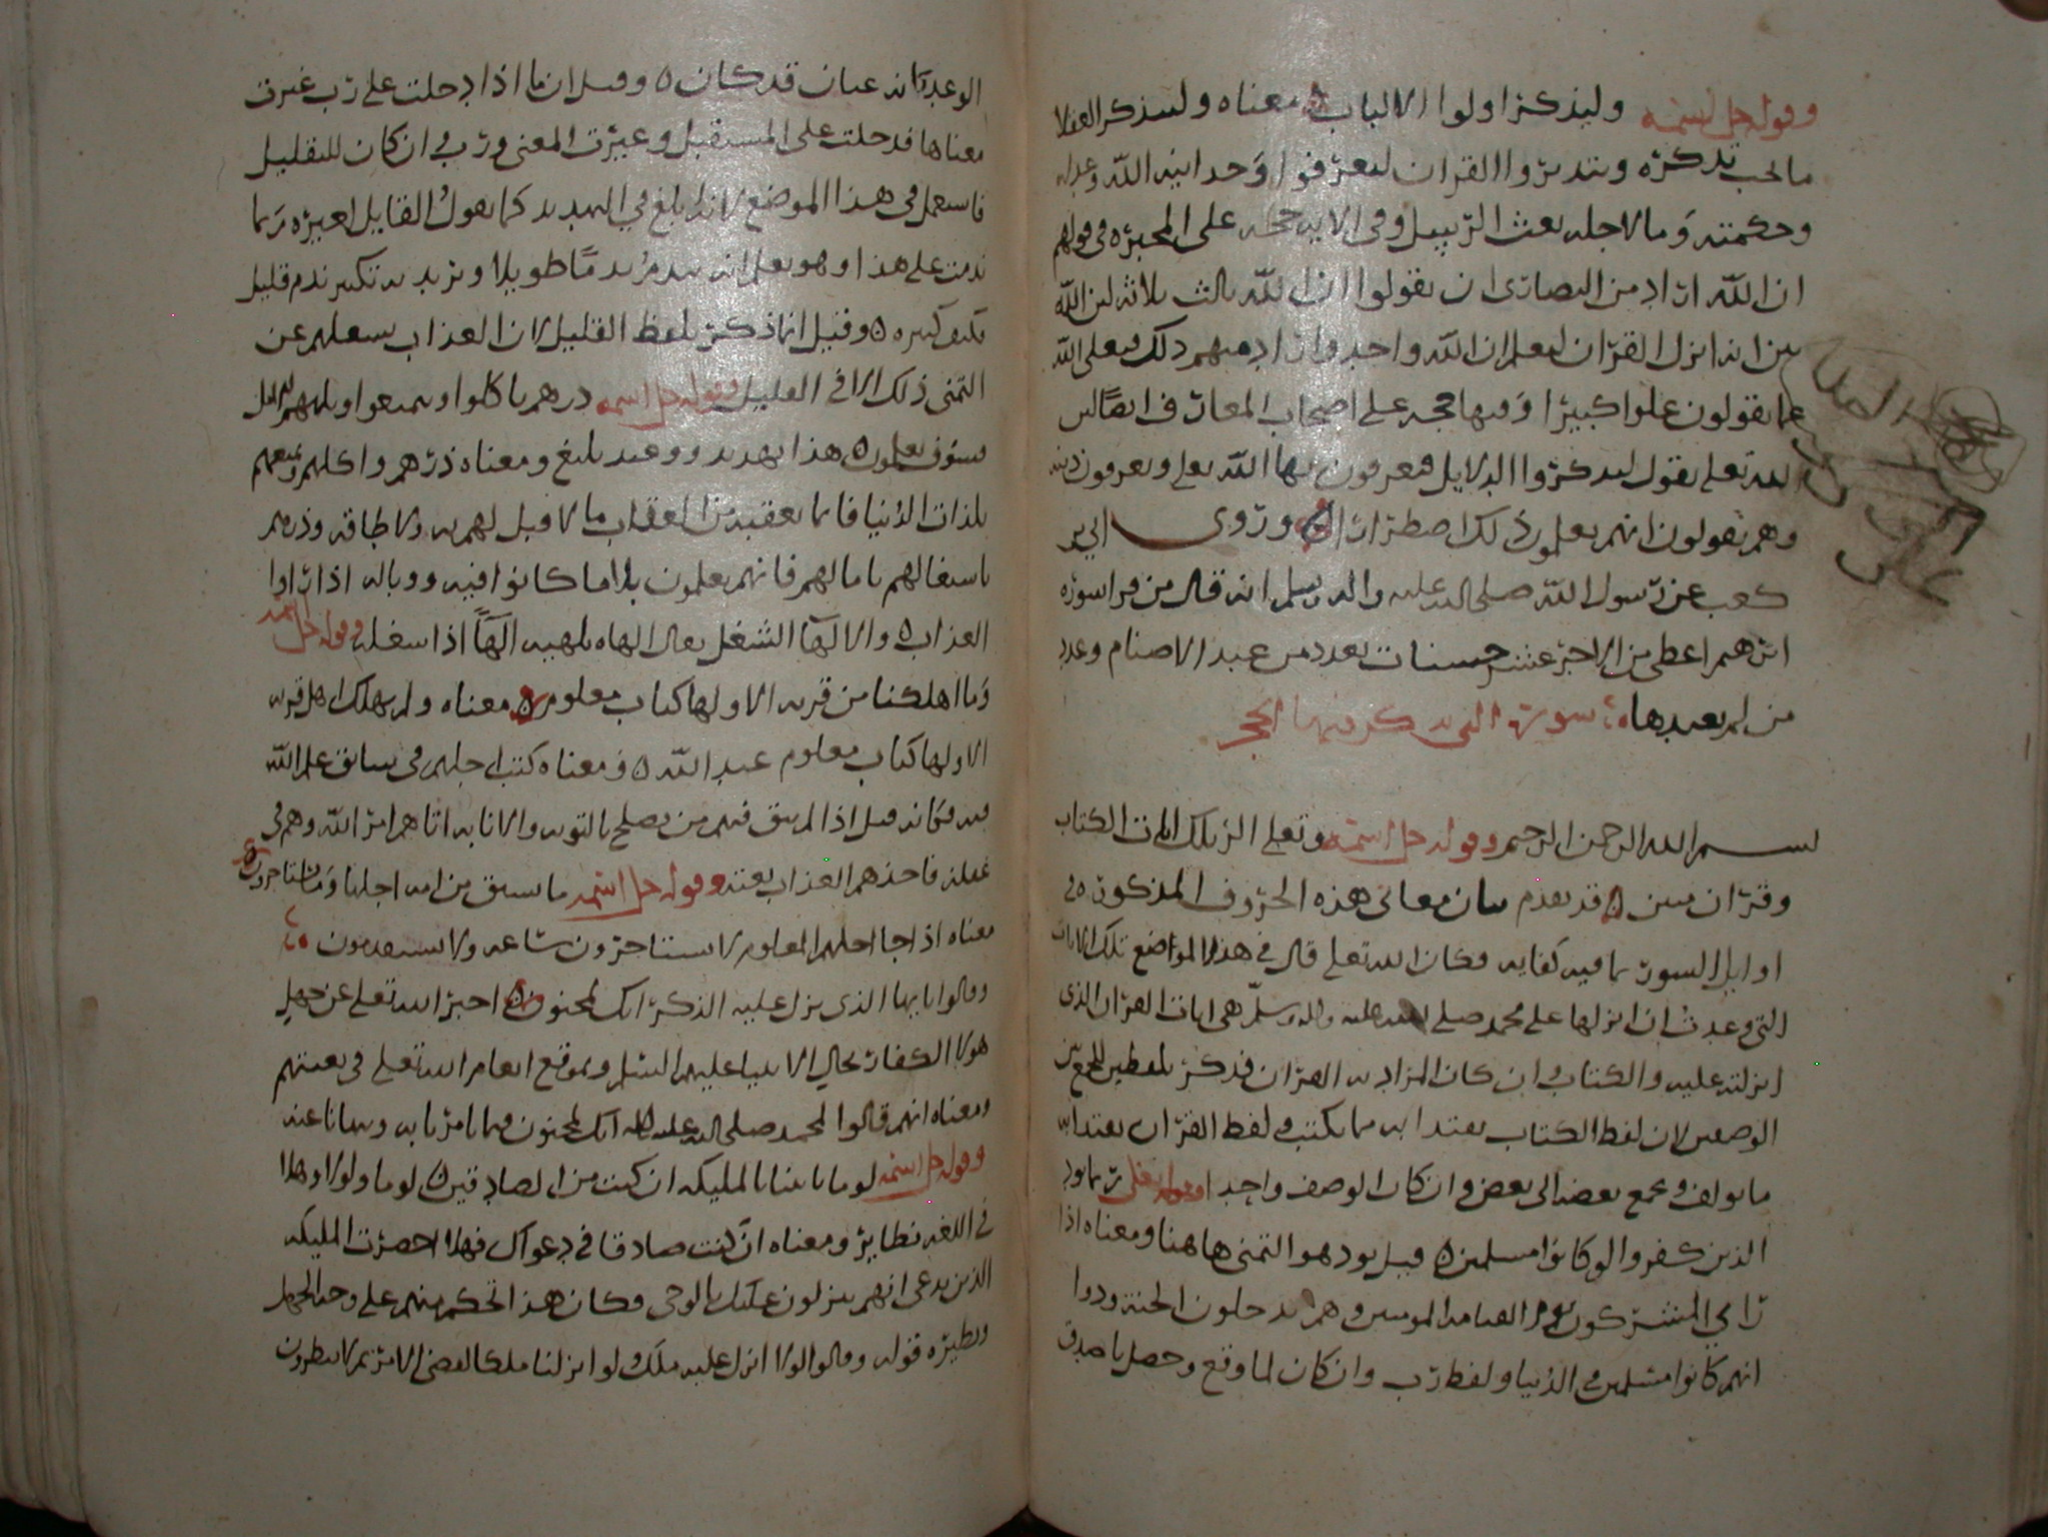 وقوله جل اسمه وليذكر اولوا الالباب معناه وليتذكر العقلا
ما يجب تذكره ويتدبروا القران ليعرفوا وحدانيه الله وعدله
وحكمته وما لاجله بعث الرسل وفي الايه حجه على المجبره في قولهم
ان الله اراد من النصارى ان يقولوا ان الله ثالث ثلاثه لان الله
بين انه انزل القران ليعلم ان الله واحد واراد منهم ذلك فتعلى الله
عما يقولون علوا كبيرا وفيها حجه على اصحاب المعارف ايضا لان
الله تعلى يقول ليذكروا الدلايل فيعرفون بها الله تعلى ويعرفون دينه
وهم يقولون انهم يعلمون ذلك اضطرارا وروى ابي بن
كعب عن رسول الله صلى الله عليه واله وسلم انه قال من قرا سوره
ابرهيم اعطى من الاجر عشر حسنات بعدد من عبد الاصنام وعدد
من لم يعبدها سورة التي يذكر فيها الحجر
بسم الله الرحمن الرحيم وقوله جل اسمه وتعلى الر تلك ايات الكتاب
وقران مبين قد تقدم بيان معاني هذه الحروف المذكورة في
اوايل السور بما فيه كفايه فكان الله تعلى قال في هذه المواضع تلك الايات
التي وعدت ان انزلها على محمد صلى الله عليه واله وسلم هي ايات القران الذي
انزلته عليه والكتاب وان كان المراد به القران فذكر بلفظين للجمع بين
الوصفين لان لفظ الكتاب يفيد انه مما يكتب ولفظ القران يفيد انه
مما يولف ويجمع بعضه الى بعض وان كان الوصف واحد وقوله تعلى ربما يود
الذين كفروا لو كانوا مسلمين قيل يود هو التمني هاهنا ومعناه اذا
راى المشركون يوم القيامه المومنين وهم يدخلون الجنه ودوا
انهم كانوا مسلمين في الدنيا ولفظ رب وان كان لما وقع وحصل يا صدق
الوعد كانه عيان قد كان وقيل ان ما اذا دخلت على رب غيرت
معناها فدخلت على المستقبل وغيرت المعنى ورب وان كان للتقليل
فاستعمل في هذا الموضع لانه ابلغ في التهديد كما يقول القايل لغيره ربما
ندمت على هذا وهو يعلم انه يندم ندما طويلا ويريد به تكبير ندم قليل
فكيف كثيره وقيل انما ذكر بلفظ القليل لان العذاب يشغلهم عن
التمني ذلك الا في القليل وقوله جل اسمه ذرهم ياكلوا ويتمتعوا ويلههم الامل
فسوف يعلمون هذا تهديد ووعيد بليغ ومعناه ذرهم واكلهم وتمتعهم
بلذات الدنيا فانما يعقبه من العقاب ما لا قبل لهم به ولا طاقه وذرهم
باشتغالهم بامالهم فانهم يعلمون بلا ما كانوا فيه ووباله اذا راوا
العذاب والالها الشغل يقال الهاه يلهيه الها اذا شغله وقوله جل اسمه
وما اهلكنا من قريه الا ولها كتاب معلوم معناه ولم يهلك اهل قريه
الا ولها كتاب معلوم عند الله ومعناه كتب اجلهم في سابق علم الله
فيه فكانه قيل اذا لم يبق فيهم من يصلح بالتوبه والانابه اتاهم امر الله وهم في
غفله فاخذهم العذاب بغته وقوله جل اسمه ما تسبق من امه اجلها وما يستاخرون
معناه اذا جا اجلهم المعلوم لا يستاخرون ساعه ولا يستقدمون
وقالوا يا يها الذي نزل عليه الذكر انك لمجنون اخبر الله تعلى عن جهل
هولا الكفار بحال الانبيا عليهم السلم وبموقع انعام الله تعلى في بعثتهم
ومعناه انهم قالوا لمحمد صلى الله عليه واله انك لمجنون فيما تامرنا به وتنهانا عنه
وقوله جل اسمه لو ما تاتينا بالمليكه ان كنت من الصادقين لو ما ولولا وهلا
في اللغه نظاير ومعناه ان كنت صادقا في دعواك فهلا احضرت المليكه
الذين تدعي انهم ينزلون عليك بالوحي وكان هذا تحكم منهم على وجه الجهل
ونظيره قوله وقالوا لولا انزل عليه ملك ولو انزلنا ملكا لقضي الامر ثم لا ينظرون